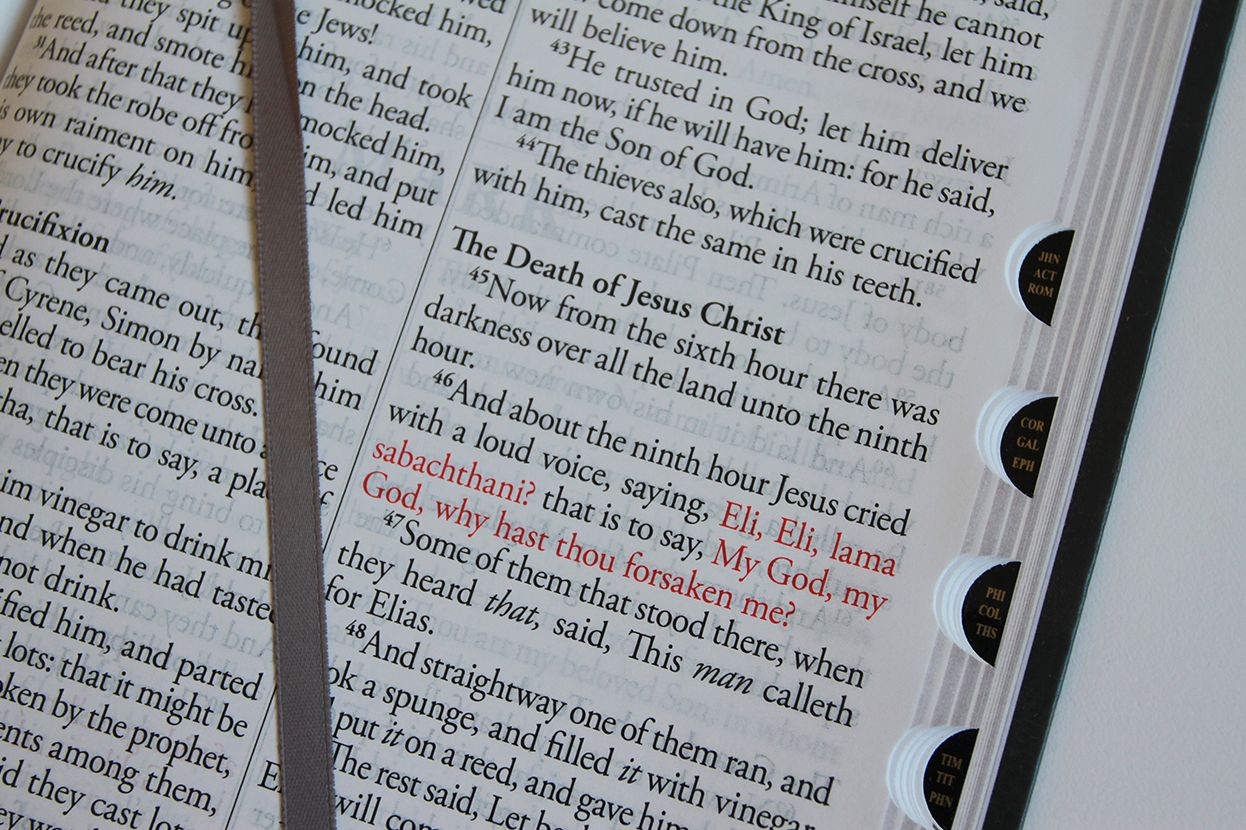 mocked him,
Jews!
they spit up him, and took
the reed, and smote on the head.
31And after that they mocked him,
they took the robe off him, and put
own raiment on him led him
to crucify him.
as they came out, found
Cyrene, Simon by him
to bear his cross.
they were come unto
that is to say, a of
vinegar to drink
and when he had
not drink.
him, and parted
lots: that it might be
by the prophet,
among them,
they cast
said,
himself he cannot
the King of Israel, let him
come down from the cross, and we
will believe him.
43He trusted in God; let him deliver
him now, if he will have him: for he said,
I am the Son of God.
44The thieves also, which were crucified
with him, cast the same in his teeth.
The Death of Jesus Christ
45Now from the sixth hour there was
darkness over all the land unto the ninth
hour.
46And about the ninth hour Jesus cried
with a loud voice, saying, Eli, Eli, lama
sabachthani? that is to say, My God, my
God, why hast thou forsaken me?
47Some of them that stood there, when
they heard that, said, This man calleth
for Elias.
48And straightway one of them ran, and
a spunge, and filled it with vinegar
put it on a reed, and gave him
The rest said, Let
will
JHN
ACT
ROM
COR
GAL
EPH
PHI
COL
THS
TIM
TIT
PHN